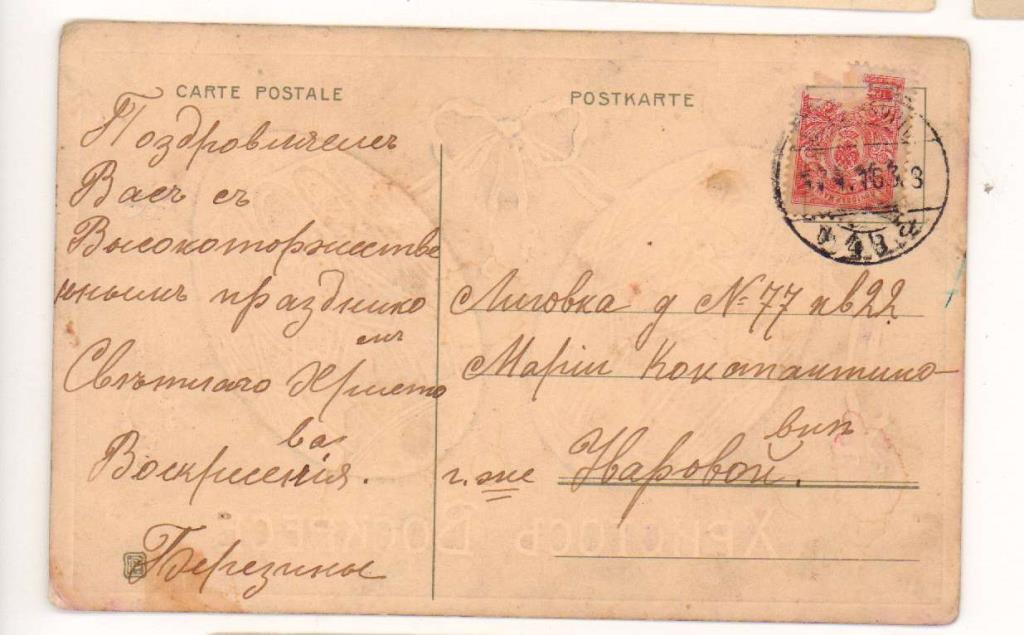 CARTE POSTALE
POSTKARTE
Поздровляемъ
Васъ съ
Высокоторжестве
ннымъ празднико
мъ
Свѣтлаго Христо
ва
Воскрисенія.
Березины
Лиговка д № 77 кв 22
Маріи Константино-
вни
г.же Наровой.
ХРИСТОСЪ ВОСКРЕСЕ